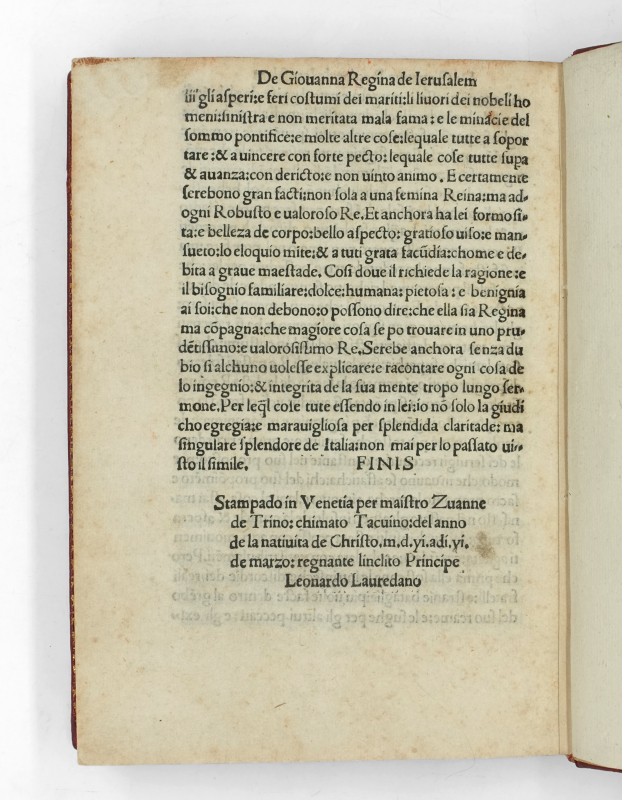 De Giouanna Regina de Ierusalem
iii gli asperi:e feri costumi dei mariti:li liuori dei nobeli ho
meni:sinistra e non meritata mala fama : e le minacie del
sommo pontifice:e molte altre cose:lequale tutte a sopor
tare :& a uincere con forte pecto: lequale cose tutte supa
& auanza:con dericto:e non uinto animo . E certamente
serebono gran facti:non sola a una femina Reina:ma ad-
ogni Robusto e ualoroso Re. Et anchora ha lei formosi-
ta:e belleza de corpo:bello aspecto: gratioso uiso:e man-
sueto:lo eloquio mite:& a tuti grata facūdia:chome e de-
bita a graue maestade. Cosi doue il richiede la ragione:e
il bisognio familiare:dolce:humana: pietosa : e benignia
ai soi:che non debono:o possono dire:che ella sia Regina
ma cōpagna:che magiore cosa se po trouare in uno pru-
dētissimo:e ualorosissimo Re. Serebe anchora senza du
bio si alchuno uolesse explicare:e racontare ogni cosa de
lo ingegnio:& integrita de la sua mente tropo lungo ser-
mone. Per leq̄l cose tute essendo in lei:io nō solo la giudi
cho egregia:e marauigliosa per splendida claritade: ma
singulare splendore de Italia:non mai per lo passato ui-
sto il simile. FINIS
Stampado in Venetia per maistro Zuanne
de Trino: chimato Tacuino:del anno
de la natiuita de Christo.m.d.yi.adi.yi.
de marzo: regnante linclito Principe
Leonardo Lauredano